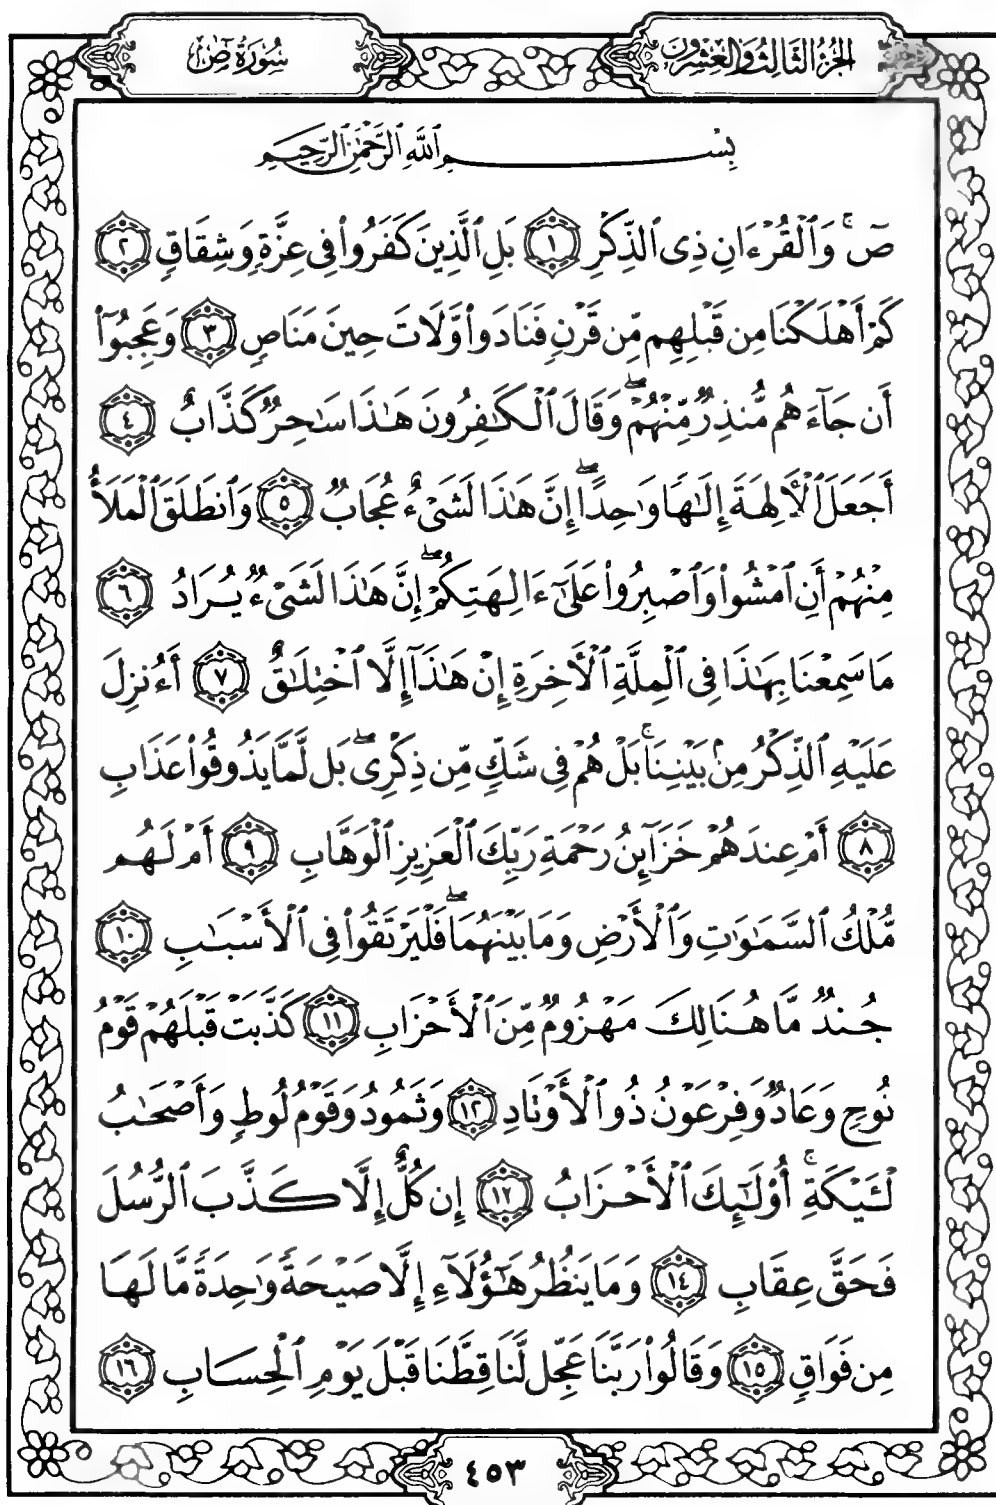 الجزء الثالث والعشرون
سورة ص
بِسْمِ ٱللَّهِ ٱلرَّحْمَٰنِ ٱلرَّحِيمِ
صٓ ۚ وَٱلْقُرْءَانِ ذِى ٱلذِّكْرِ ﴿١﴾ بَلِ ٱلَّذِينَ كَفَرُوا۟ فِى عِزَّةٍ وَشِقَاقٍ ﴿٢﴾
كَمْ أَهْلَكْنَا مِن قَبْلِهِم مِّن قَرْنٍ فَنَادَوا۟ وَّلَاتَ حِينَ مَنَاصٍ ﴿٣﴾ وَعَجِبُوٓا۟
أَن جَآءَهُم مُّنذِرٌ مِّنْهُمْ ۖ وَقَالَ ٱلْكَٰفِرُونَ هَٰذَا سَٰحِرٌ كَذَّابٌ ﴿٤﴾
أَجَعَلَ ٱلْأَلِهَةَ إِلَٰهًا وَٰحِدًا ۖ إِنَّ هَٰذَا لَشَىْءٌ عُجَابٌ ﴿٥﴾ وَٱنطَلَقَ ٱلْمَلَأُ
مِنْهُمْ أَنِ ٱمْشُوا۟ وَٱصْبِرُوا۟ عَلَىٰٓ ءَالِهَتِكُمْ ۖ إِنَّ هَٰذَا لَشَىْءٌ يُرَادُ ﴿٦﴾
مَا سَمِعْنَا بِهَٰذَا فِى ٱلْمِلَّةِ ٱلْأَخِرَةِ إِنْ هَٰذَآ إِلَّا ٱخْتِلَٰقٌ ﴿٧﴾ أَءُنزِلَ
عَلَيْهِ ٱلذِّكْرُ مِنۢ بَيْنِنَا ۚ بَلْ هُمْ فِى شَكٍّ مِّن ذِكْرِى ۖ بَل لَّمَّا يَذُوقُوا۟ عَذَابِ
﴿٨﴾ أَمْ عِندَهُمْ خَزَآئِنُ رَحْمَةِ رَبِّكَ ٱلْعَزِيزِ ٱلْوَهَّابِ ﴿٩﴾ أَمْ لَهُم
مُّلْكُ ٱلسَّمَٰوَٰتِ وَٱلْأَرْضِ وَمَا بَيْنَهُمَا ۖ فَلْيَرْتَقُوا۟ فِى ٱلْأَسْبَٰبِ ﴿١٠﴾
جُندٌ مَّا هُنَالِكَ مَهْزُومٌ مِّنَ ٱلْأَحْزَابِ ﴿١١﴾ كَذَّبَتْ قَبْلَهُمْ قَوْمُ
نُوحٍ وَعَادٌ وَفِرْعَوْنُ ذُو ٱلْأَوْتَادِ ﴿١٢﴾ وَثَمُودُ وَقَوْمُ لُوطٍ وَأَصْحَٰبُ
لْـَٔيْكَةِ ۚ أُو۟لَٰٓئِكَ ٱلْأَحْزَابُ ﴿١٣﴾ إِن كُلٌّ إِلَّا كَذَّبَ ٱلرُّسُلَ
فَحَقَّ عِقَابِ ﴿١٤﴾ وَمَا يَنظُرُ هَٰٓؤُلَآءِ إِلَّا صَيْحَةً وَٰحِدَةً مَّا لَهَا
مِن فَوَاقٍ ﴿١٥﴾ وَقَالُوا۟ رَبَّنَا عَجِّل لَّنَا قِطَّنَا قَبْلَ يَوْمِ ٱلْحِسَابِ ﴿١٦﴾
٤٥٣